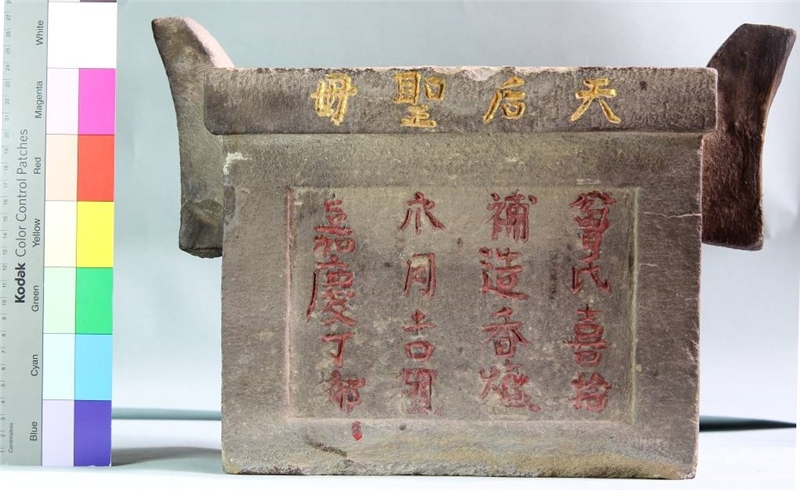 天后聖母
氏喜捨
補造香爐
月吉
嘉慶丁卯
Kodak Color Control Patches
Blue
Cyan
Green
Yellow
Red
Magenta
White
Centimetres